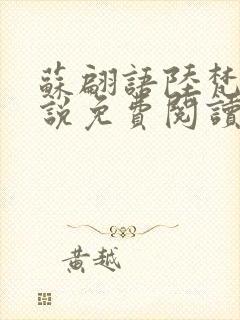 蘇翩語陸梵
說免費閱讀
黃越